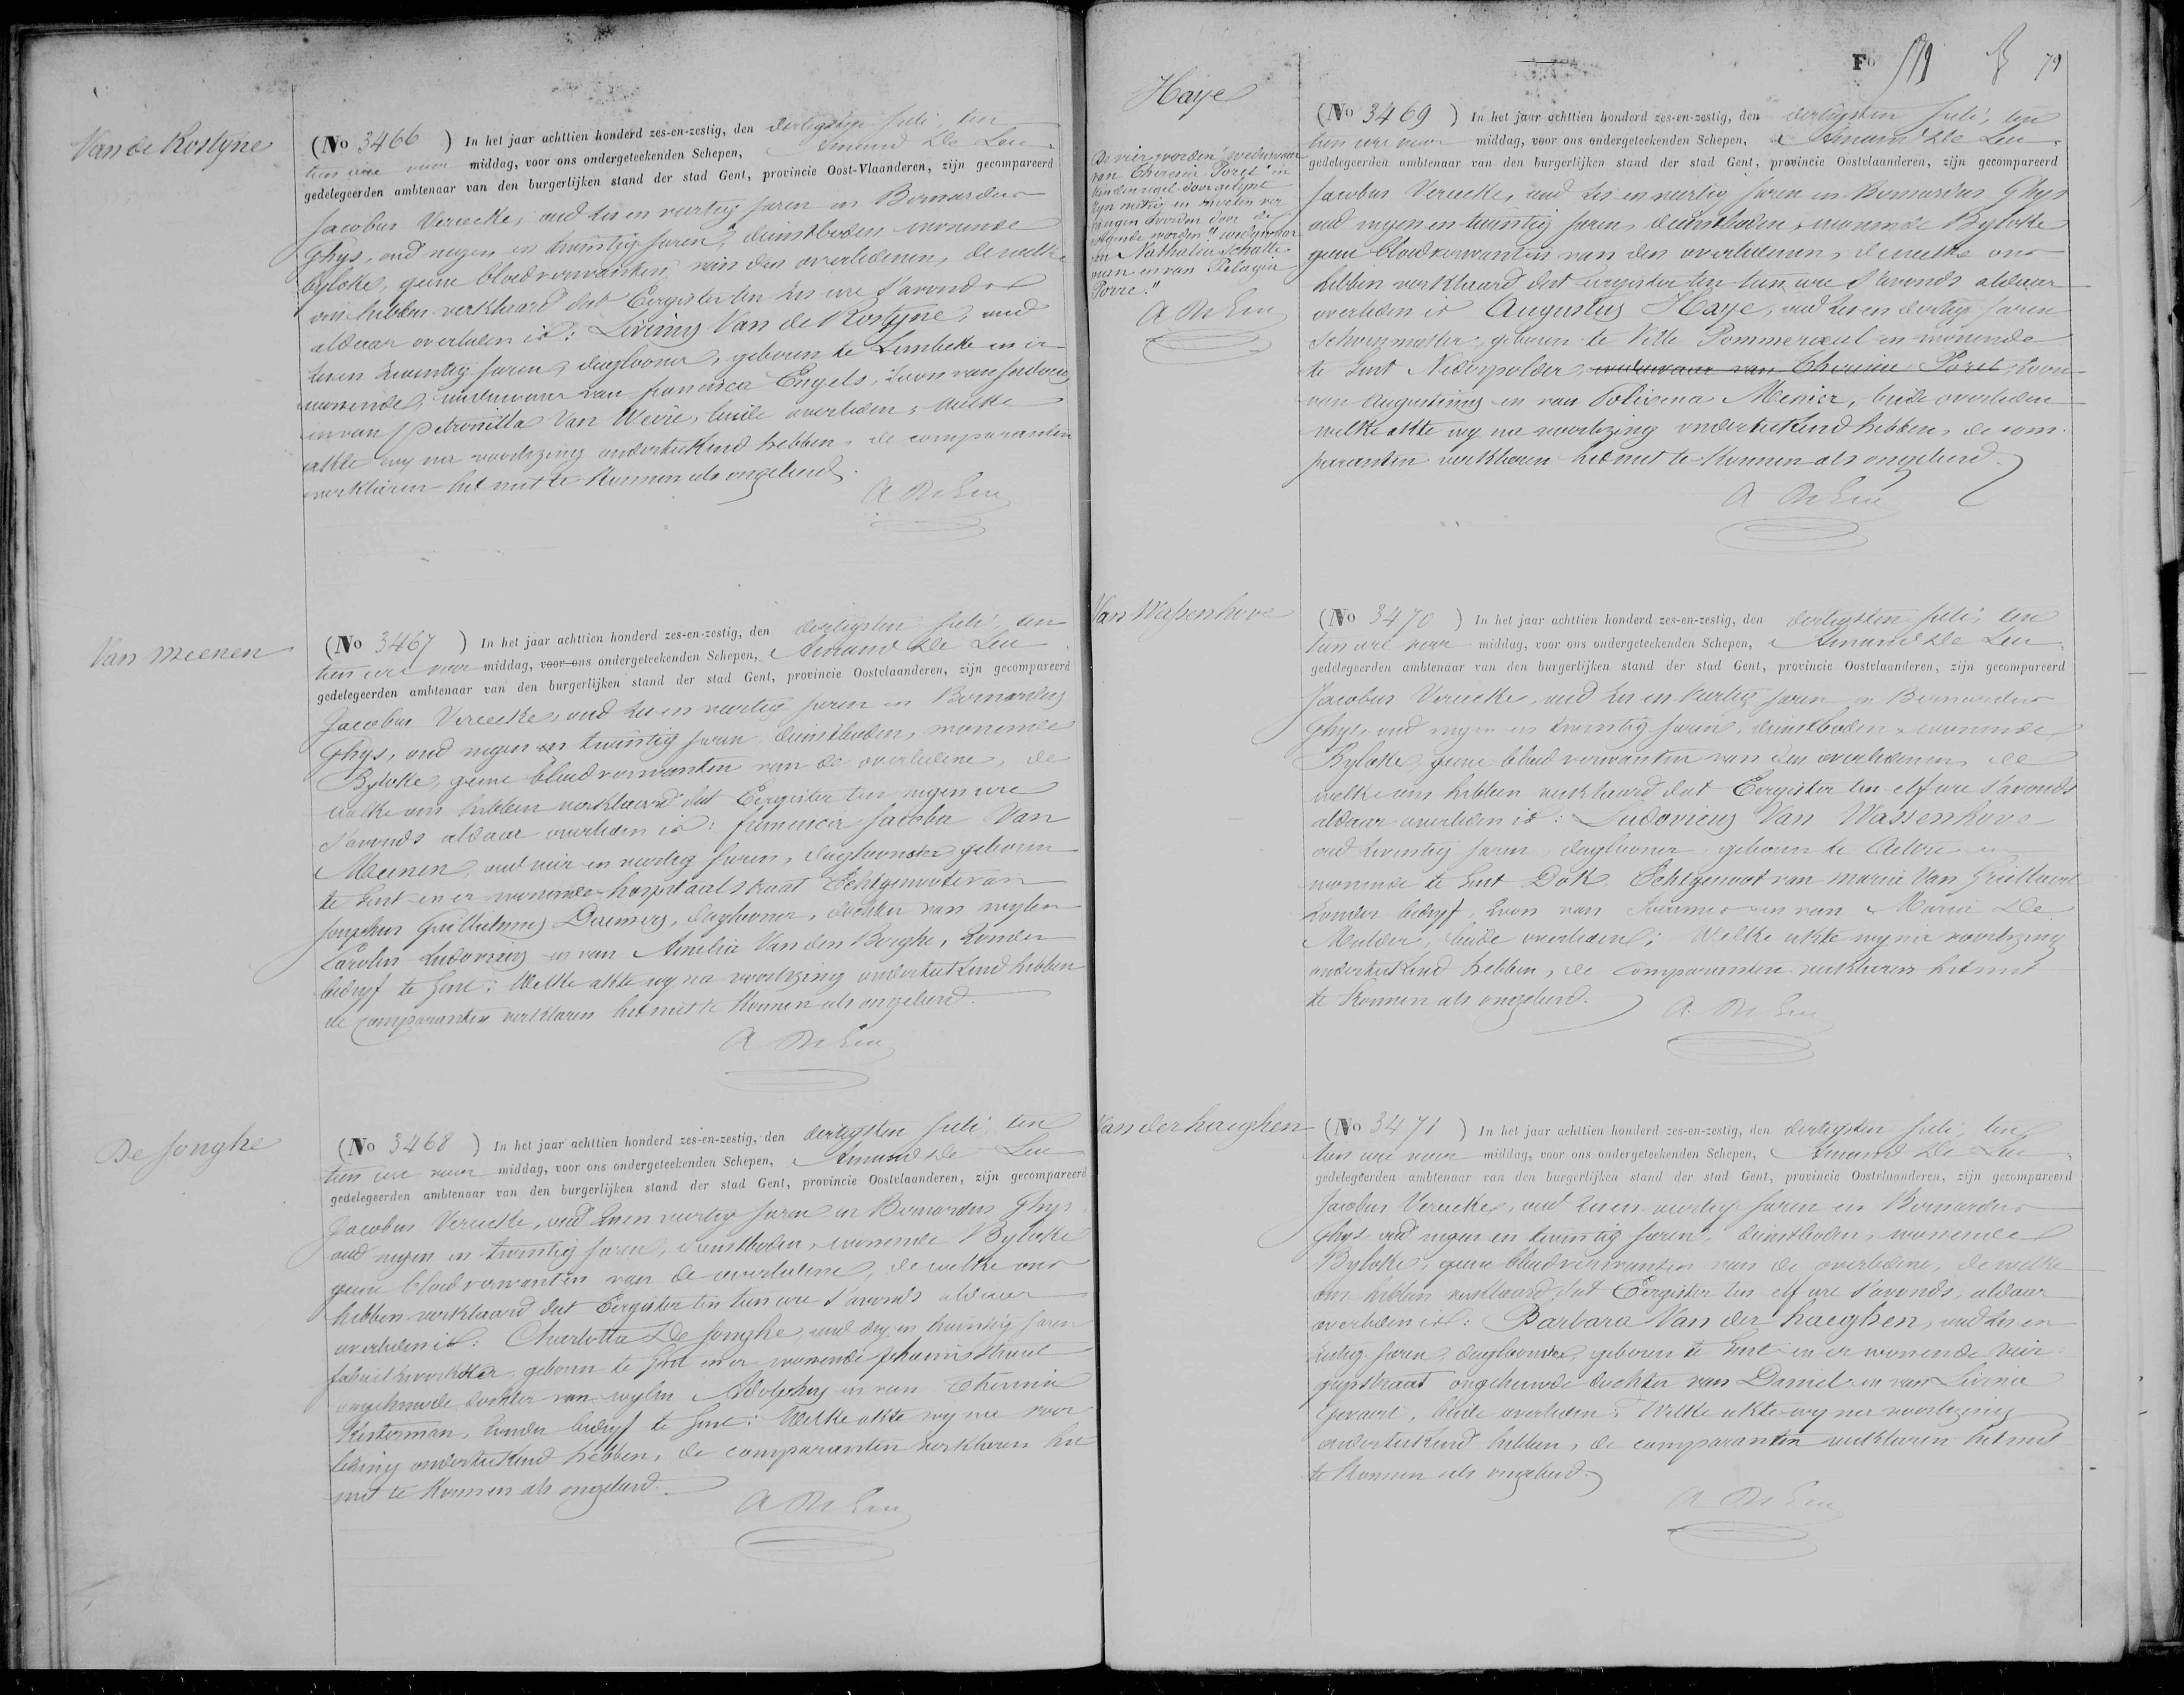 Van de Rostyne
(No 3466 ) In het jaar achttien honderd zes-en-zestig, den dertigsten Juli ten
tien ure voor middag, voor ons ondergeteekenden Schepen, Amand De Leu
gedelegeerden ambtenaar van den burgerlijken stand der stad Gent, provincie Oost-Vlaanderen, zijn gecompareerd
Jacobus Vereecke, oud zes en veertig Jaren en Bernardus
Ghys, oud negen en twintig Jaren, dienstboden wonende
byloke, geene bloedverwanten van den overledenen, dewelke
ons hebben verklaard dat Eergister ten zes ure s'avonds
aldaar overleden is: Livinus Van de Rostyne, oud
zeven zeventig Jaren, daglooner, geboren te Lembeke en er
wonende, weduwaar van francisca Engels, Zoon van Judocus
en van Petronilla Van Wevre, beide overleden, welke
akte wy na voorlezing onderteekend hebben, de comparanten
verklaren het niet te konnen als ongeleerd.
A De Leu
Van Meenen
(No 3467 ) In het jaar achttien honderd zes-en-zestig, den dertigsten Juli ten
tien ure voor middag, voor ons ondergeteekenden Schepen, Amand De Leu
gedelegeerden ambtenaar van den burgerlijken stand der stad Gent, provincie Oostvlaanderen, zijn gecompareerd
Jacobus Vereecke, oud zes en veertig Jaren en Bernardus
Ghys, oud negen en twintig Jaren dienstboden, wonende
Byloke, geene bloedverwanten van de overledene, de
welke ons hebben verklaard dat Eergister ten negen ure
s'avonds aldaar overleden is: francisca Jacoba Van
Meenen, oud vier en veertig Jaren, dagloonster geboren
te Gent en er wonende hospitaalstraat Echtgenoote van
Josephus Guillielmus Daemers, daglooner, dochter van wylen
Carolus Ludovicus en van Amelia Van den Berghe, Zonder
bedryf te Gent: Welke akte wy na voorlezing onderteekend hebben
de comparanten verklaren het niet te konnen als ongeleerd.
A De Leu
De Jonghe
(No 3468 ) In het jaar achttien honderd zes-en-zestig, den dertigsten Juli ten
tien ure voor middag, voor ons ondergeteekenden Schepen, Amand De Leu
gedelegeerden ambtenaar van den burgerlijken stand der stad Gent, provincie Oostvlaanderen, zijn gecompareerd
Jacobus Vereecke, oud zes en veertig Jaren en Bernardus Ghys
oud negen en twintig Jaren, dienstboden, wonende Byloke
geene bloedverwanten van de overledene, dewelke ons
hebben verklaard dat Eergister ten tien ure s'avonds aldaar
overleden is: Charlotta De Jonghe, oud dry en twintig Jaren
fabriekwerkster geboren te Gent en er wonende
ongehuwde dochter van wylen Adolphus en van Theresia
Kesterman, Zonder bedryf te Gent: Welke akte wy na voor
lezing onderteekend hebben, de comparanten verklaren het
niet te konnen als ongeleerd.
A De Leu
Fo 79
Haye
De vier woorden "weduwaar
van Theresia Poret" in
doorgelynt
zyn nietig en moeten ver
vangen worden door de
volgende woorden "weduwaar
van Nathalia Schatte
man en van Pelagia
Porre."
A De Leu
(No 3469 ) In het jaar achttien honderd zes-en-zestig, den dertigsten Juli, ten
tien ure voor middag, voor ons ondergeteekenden Schepen, Amand De Leu
gedelegeerden ambtenaar van den burgerlijken stand der stad Gent, provincie Oostvlaanderen, zijn gecompareerd
Jacobus Vereecke, oud zes en veertig Jaren en Bernardus Ghys
oud negen en twintig Jaren, dienstboden, wonende Byloke
geene bloedverwanten van den overledenen, dewelke ons
hebben verklaard dat eergister ten tien ure s'avonds aldaar
overleden is Augustus Haye, oud zes en dertig Jaren
Schoenmaker, geboren te Ville Pommeroeul en wonende
te Gent Nederpolder, weduwaar van Theresia Poret, Zoon
van Augustinus en van Polixena Menier, beide overleden
welke akte wy na voorlezing onderteekend hebben, de com
paranten verklaren het niet te konnen als ongeleerd.
A De Leu
Van Wassenhove
(No 3470 ) In het jaar achttien honderd zes-en-zestig, den dertigsten Juli, ten
tien ure voor middag, voor ons ondergeteekenden Schepen, Amand De Leu
gedelegeerden ambtenaar van den burgerlijken stand der stad Gent, provincie Oostvlaanderen, zijn gecompareerd
Jacobus Vereecke, oud zes en veertig Jaren en Bernardus
Ghys, oud negen en twintig Jaren, dienstboden, wonende
Byloke, geene bloedverwanten van den overledenen, de
welke ons hebben verklaard dat Eergister ten elf ure s'avonds
aldaar overleden is: Ludovicus Van Wassenhove
oud zeventig Jaren, daglooner, geboren te Aeltre en
wonende te Gent Dok, Echtgenoot van Maria Van
Zonder bedryf, Zoon van Joannes en van Maria De
Mulder, beide overleden; Welke akte wy na voorlezing
onderteekend hebben, de comparanten verklaren het niet
te konnen als ongeleerd.
A De Leu
Van der haeghen
(No 3471 ) In het jaar achttien honderd zes-en-zestig, den dertigsten Juli, ten
tien ure voor middag, voor ons ondergeteekenden Schepen, Amand De Leu
gedelegeerden ambtenaar van den burgerlijken stand der stad Gent, provincie Oostvlaanderen, zijn gecompareerd
Jacobus Vereecke, oud zes en veertig Jaren en Bernardus
Ghys oud negen en twintig Jaren, dienstboden, wonende
Byloke, geene bloedverwanten van de overledene, dewelke
ons hebben verklaard dat Eergister ten elf ure s'avonds, aldaar
overleden is: Barbara Van der haeghen, oud zes en
zestig Jaren, dagloonster, geboren te Gent en er wonende
ongehuwde dochter van Daniel en van Livina
Gevaert, beide overleden; Welke akte wy na voorlezing
onderteekend hebben, de comparanten verklaren het niet
te konnen als ongeleerd.
A De Leu